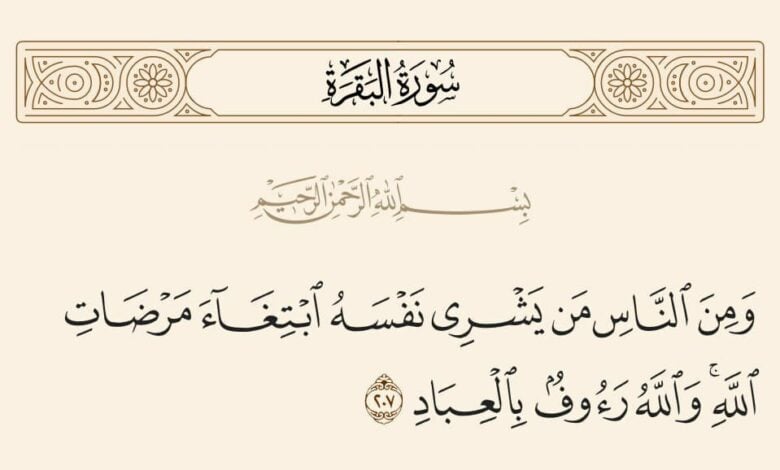 سُورَةُ البَقَرَةِ
بِسْمِ اللَّهِ الرَّحْمَٰنِ الرَّحِيمِ
وَمِنَ ٱلنَّاسِ مَن يَشْرِى نَفْسَهُ ٱبْتِغَآءَ مَرْضَاتِ
ٱللَّهِ ۚ وَٱللَّهُ رَءُوفٌۢ بِٱلْعِبَادِ ٢٠٧